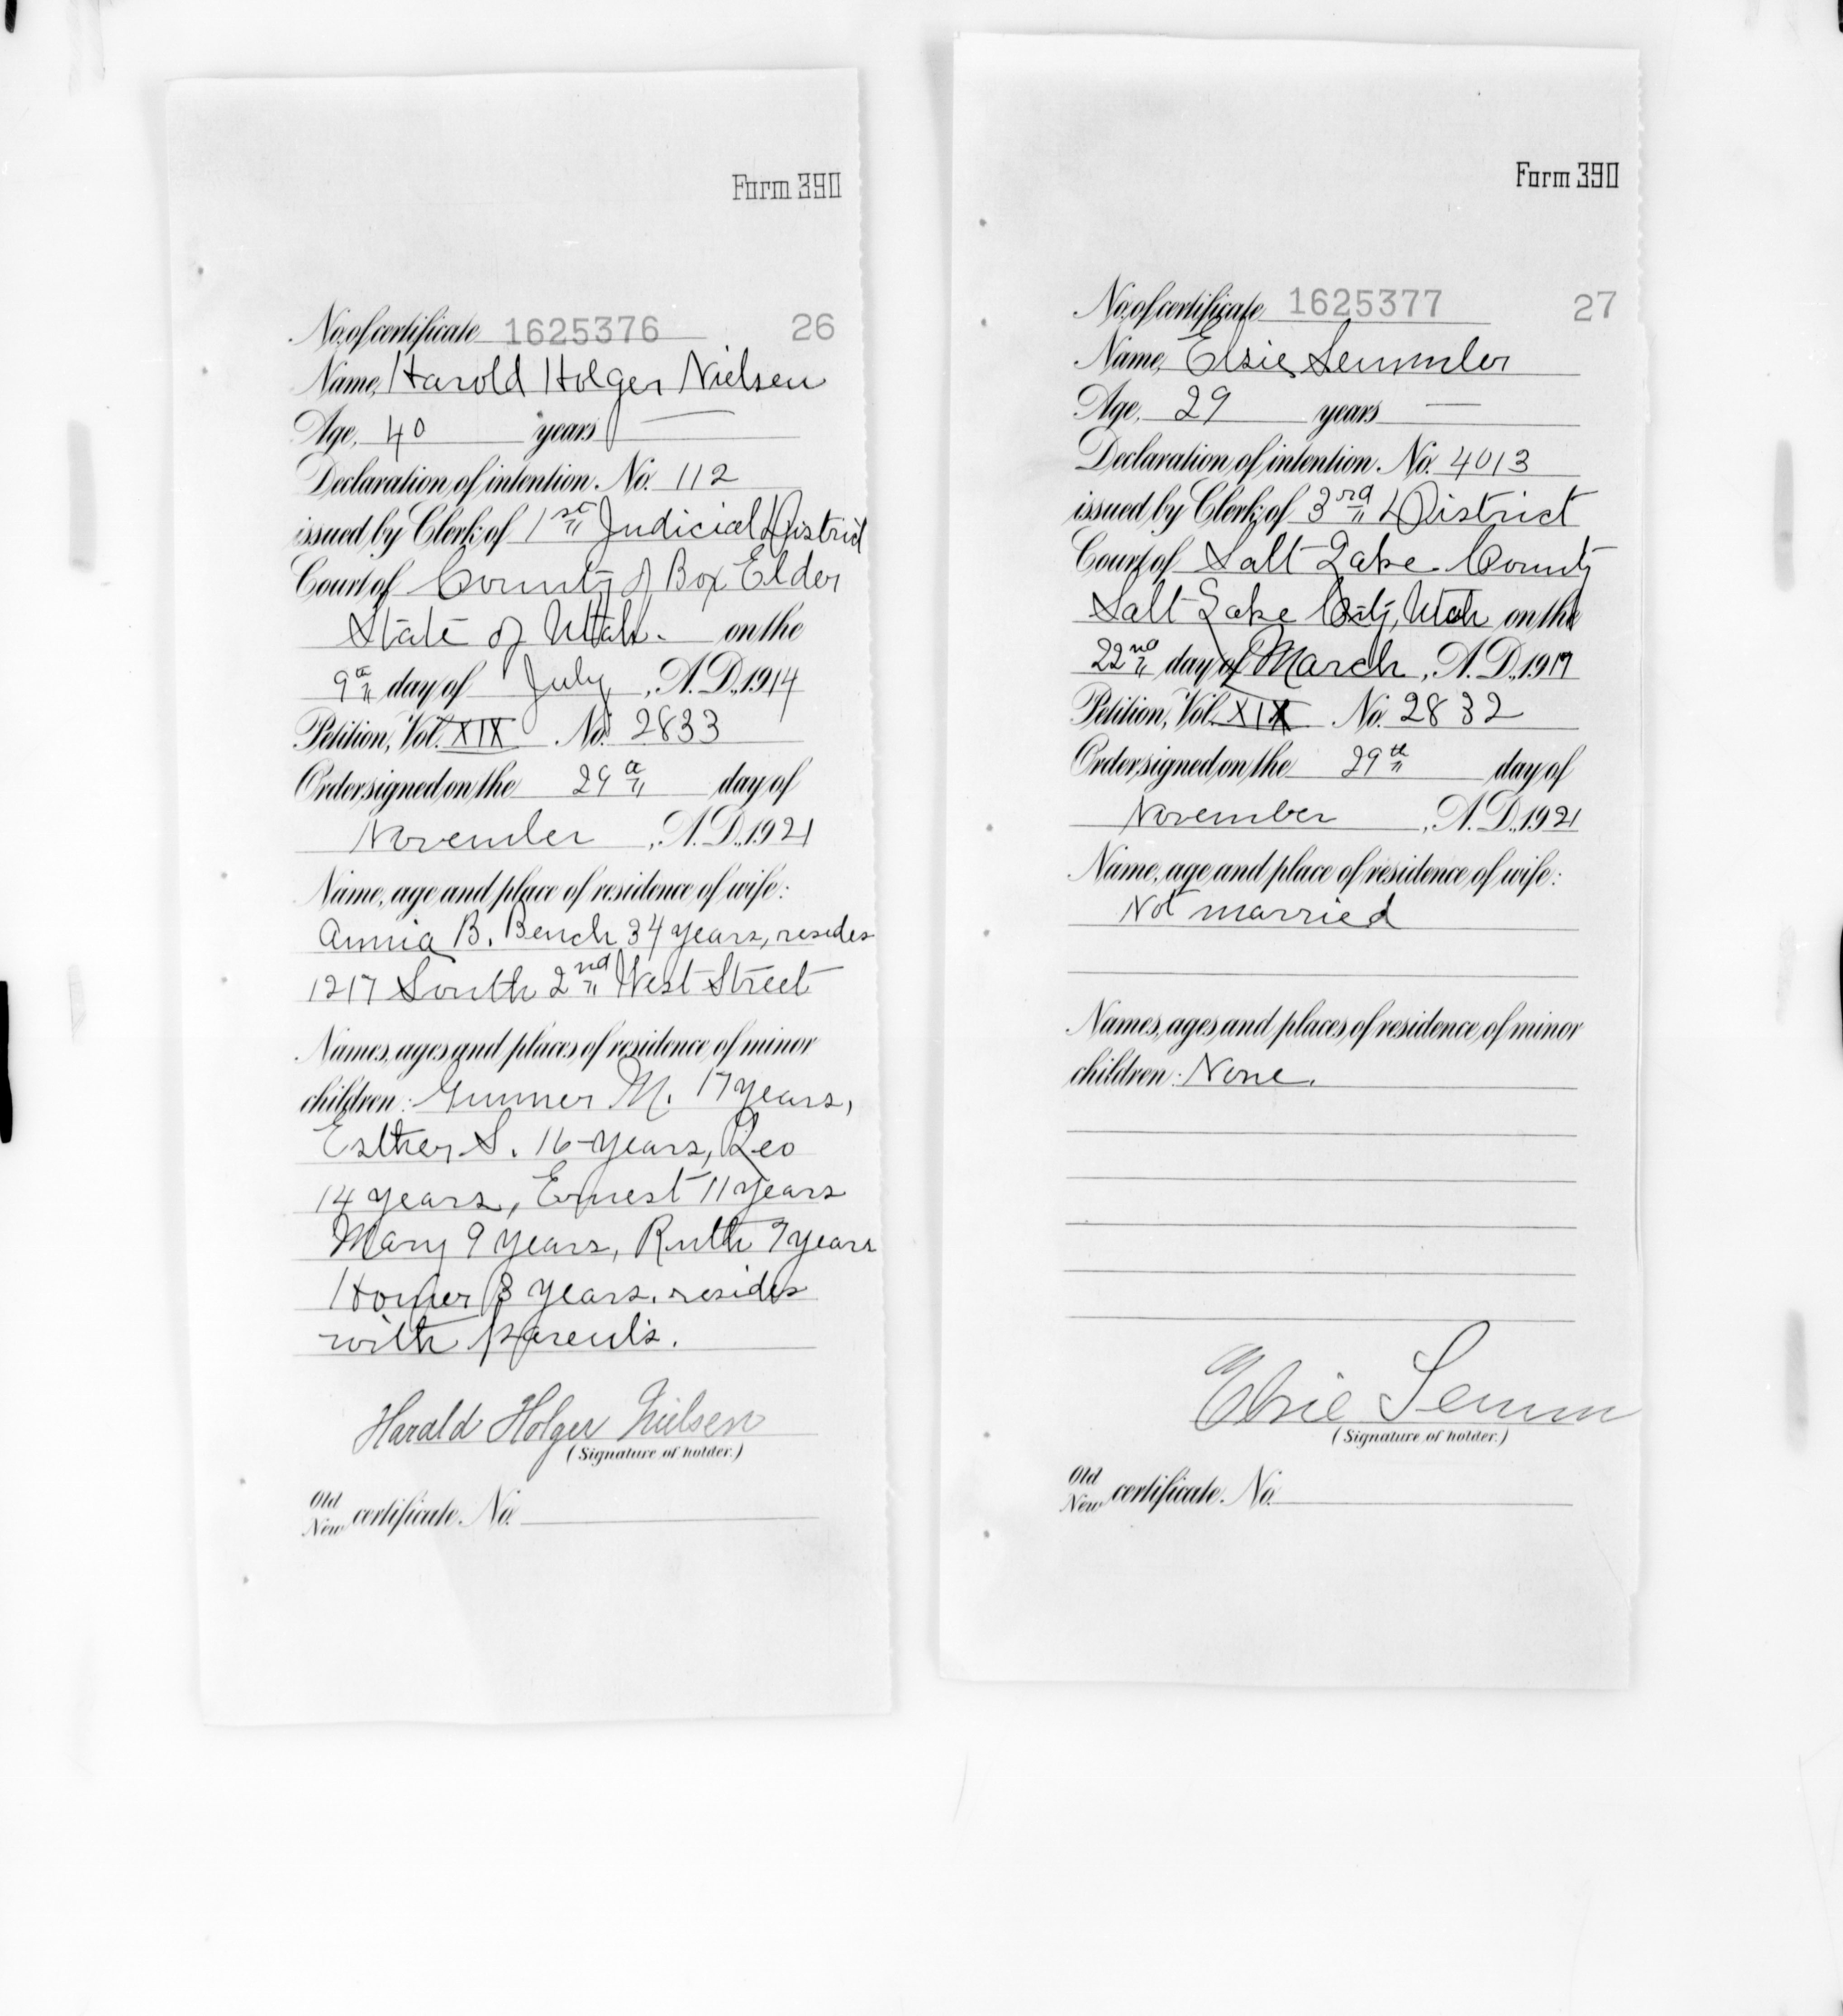 Form 390
No. of certificate 1625376 26
Name, Harold Holger Nielsen
Age, 40 years —
Declaration of intention. No. 112
issued by Clerk of 1st Judicial District
Court of County of Box Elder
State of Utah. on the
9th day of July, A.D., 1914
Petition, Vol. XIX No. 2833
Order signed on the 29th day of
November, A.D., 1921
Name, age and place of residence of wife:
Annia B. Bench 34 years, resides
1217 South 2nd West Street
Names, ages and places of residence of minor
children: Gunner M. 17 years,
Esther S. 16 years, Leo
14 years, Ernest 11 years
Mary 9 years, Ruth 7 years
Homer 3 years. resides
with parents.
Harald Holger Nielsen
(Signature of holder.)
Old
New certificate. No.
Form 390
No. of certificate 1625377 27
Name, Elsie Semmler
Age, 29 years —
Declaration of intention. No. 4013
issued by Clerk of 3rd District
Court of Salt Lake County
Salt Lake City, Utah on the
22nd day of March, A.D., 1917
Petition, Vol. XIX No. 2832
Order signed on the 29th day of
November, A.D., 1921
Name, age and place of residence of wife:
Not married
Names, ages and places of residence of minor
children: None.
Elsie Semm
(Signature of holder.)
Old
New certificate. No.